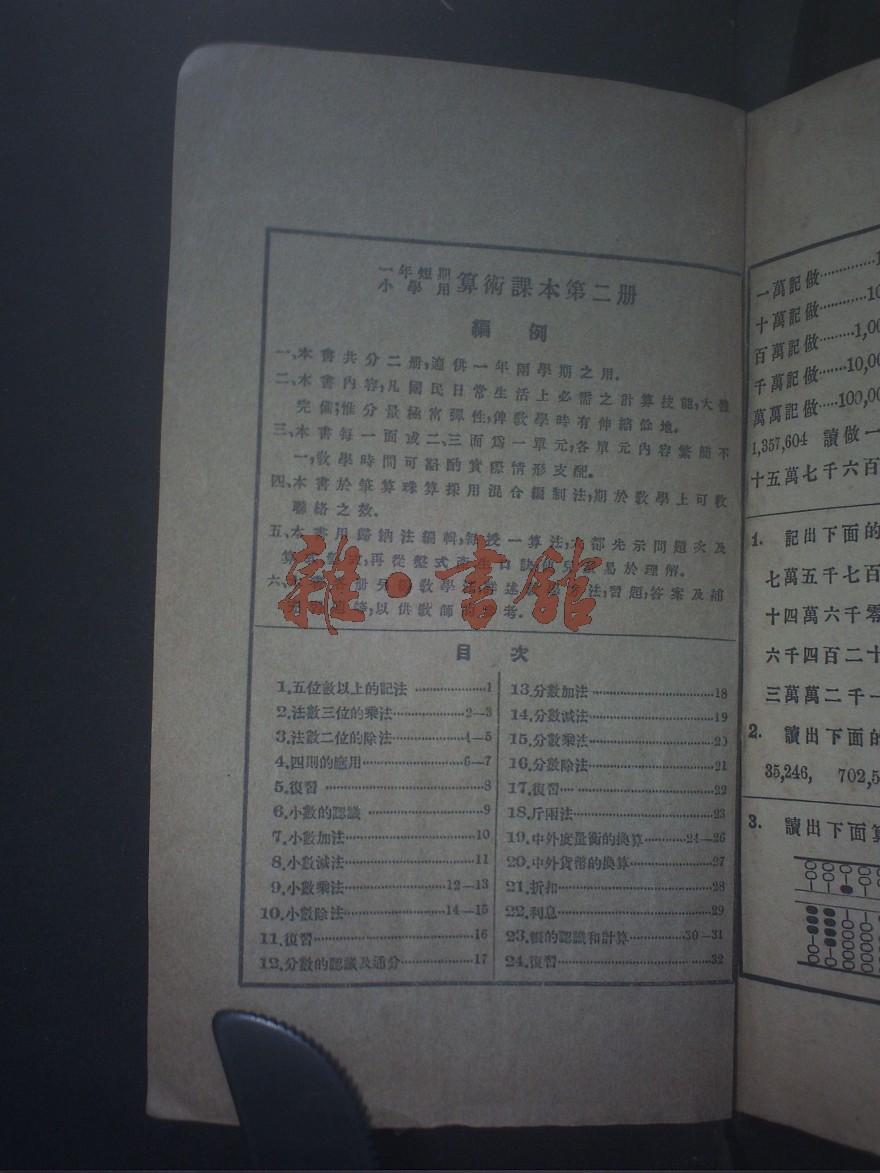 一年短期
小學用
算術課本第二册
編例
一、本書共分二册,適供一年兩學期之用。
二、本書內容,凡國民日常生活上必需之計算技能,大體
完備;惟分量極富彈性,俾敎學時有伸縮餘地。
三、本書每一面或二、三面爲一單元,各單元內容繁簡不
一,敎學時間可斟酌實際情形支配。
四、本書於筆算珠算採用混合編制法,期於敎學上可收
聯絡之效。
五、本書用歸納法編輯,每授一算法,大都先示問題次及
算 式,再從 式 口訣 易於理解。
六、 册另 敎學法,詳述 法,習題,答案及補
充 ,以供敎師 考。
雜·書館
目次
1.五位數以上的記法 1
2.法數三位的乘法 2—3
3.法數二位的除法 4—5
4.四則的應用 6—7
5.復習 8
6.小數的認識 9
7.小數加法 10
8.小數減法 11
9.小數乘法 12—13
10.小數除法 14—15
11.復習 16
12.分數的認識及通分 17
13.分數加法 18
14.分數減法 19
15.分數乘法 20
16.分數除法 21
17.復習 22
18.斤兩法 23
19.中外度量衡的換算 24—26
20.中外貨幣的換算 27
21.折扣 28
22.利息 29
23.賬的認識和計算 30—31
24.復習 32
一萬記做 1
十萬記做 10
百萬記做 1,00
千萬記做 10,00
萬萬記做 100,00
1,357,604 讀做一
十五萬七千六百
1. 記出下面的
七萬五千七百
十四萬六千零
六千四百二十
三萬萬二千一
2. 讀出下面的
35,246, 702,5
3. 讀出下面算